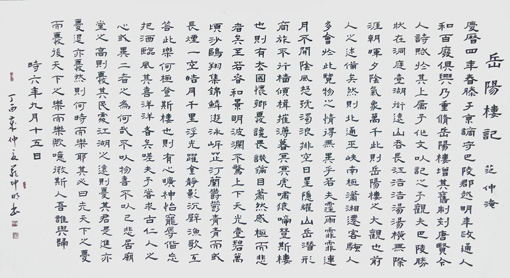 岳陽樓記 范仲淹
慶曆四年春滕子京謫守巴陵郡越明年政通人
和百廢俱興乃重修岳陽樓增其舊制刻唐賢今
人詩賦於其上屬予作文以記之予觀夫巴陵勝
狀在洞庭壹湖銜遠山吞長江浩浩湯湯橫無際
涯朝暉夕陰氣象萬千此則岳陽樓之大觀也前
人之述備矣然則北通巫峽南極瀟湘遷客騷人
多會於此覽物之情得無異乎若夫霪雨霏霏連
月不開陰風怒號濁浪排空日星隱耀山岳潛形
商旅不行檣傾楫摧薄暮冥冥虎嘯猿啼登斯樓
也則有去國懷鄉憂讒畏譏滿目蕭然感極而悲
者矣至若春和景明波瀾不驚上下天光壹碧萬
頃沙鷗翔集錦鱗游泳岸芷汀蘭郁郁青青而或
長煙一空皓月千里浮光躍金靜影沉璧漁歌互
答此樂何極登斯樓也則有心曠神怡寵辱偕忘
把酒臨風其喜洋洋者矣嗟夫予嘗求古仁人之
心或異二者之為何哉不以物喜不以己悲居廟
堂之高則憂其民處江湖之遠則憂其君是進亦
憂退亦憂然則何時而樂耶其必曰先天下之憂
而憂後天下之樂而樂歟噫微斯人吾誰與歸
時六年九月十五日